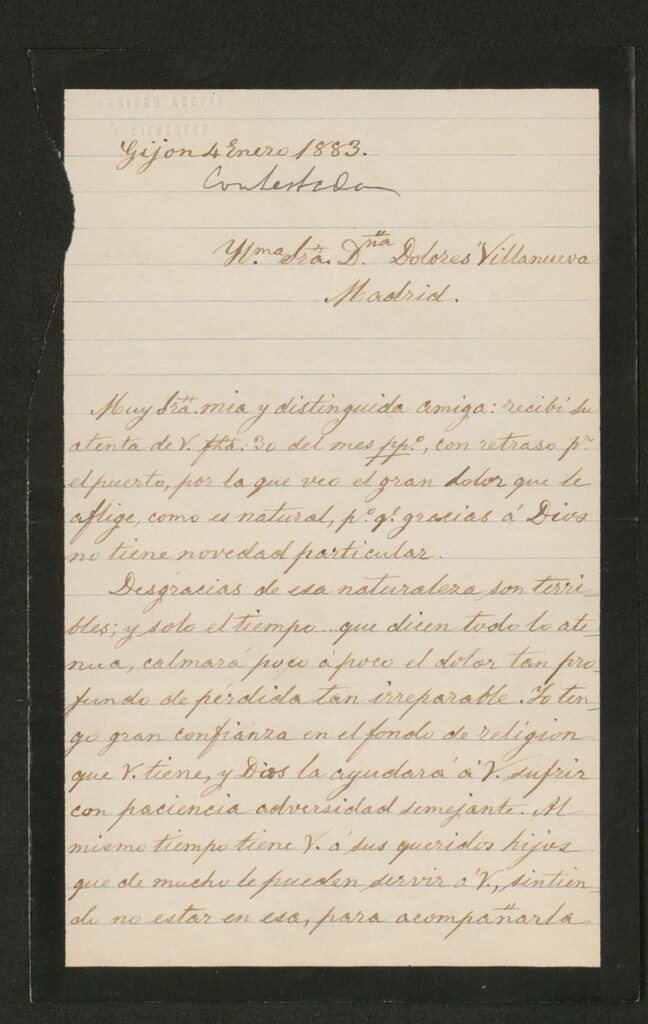 Gijon 4 Enero 1883.
Contestada
Yll.ma Sra. D.ña Dolores Villanueva
Madrid.
Muy Sra. mia y distinguida amiga: recibí su
atenta de V. fha. 30 del mes pp.º, con retraso p.r
el puerto, por la que veo el gran dolor que le
aflige, como es natural, p.º q.e gracias á Dios
no tiene novedad particular.
Desgracias de esa naturaleza son terri-
bles; y solo el tiempo... que dicen todo lo ate-
nua, calmará poco á poco el dolor tan pro-
fundo de pérdida tan irreparable. Yo ten-
go gran confianza en el fondo de religion
que V. tiene, y Dios la ayudará á V. sufrir
con paciencia adversidad semejante. Al
mismo tiempo tiene V. á sus queridos hijos
que de mucho le pueden servir á V., sintien-
do no estar en esa, para acompañarla